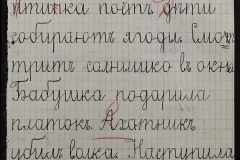 птичка поётъ дѣти
собираютъ ягоды. Смо-
тритъ солнышко въ окно
Бабушка подарила
платокъ. Ахатникъ
убилъ волка. Наступила